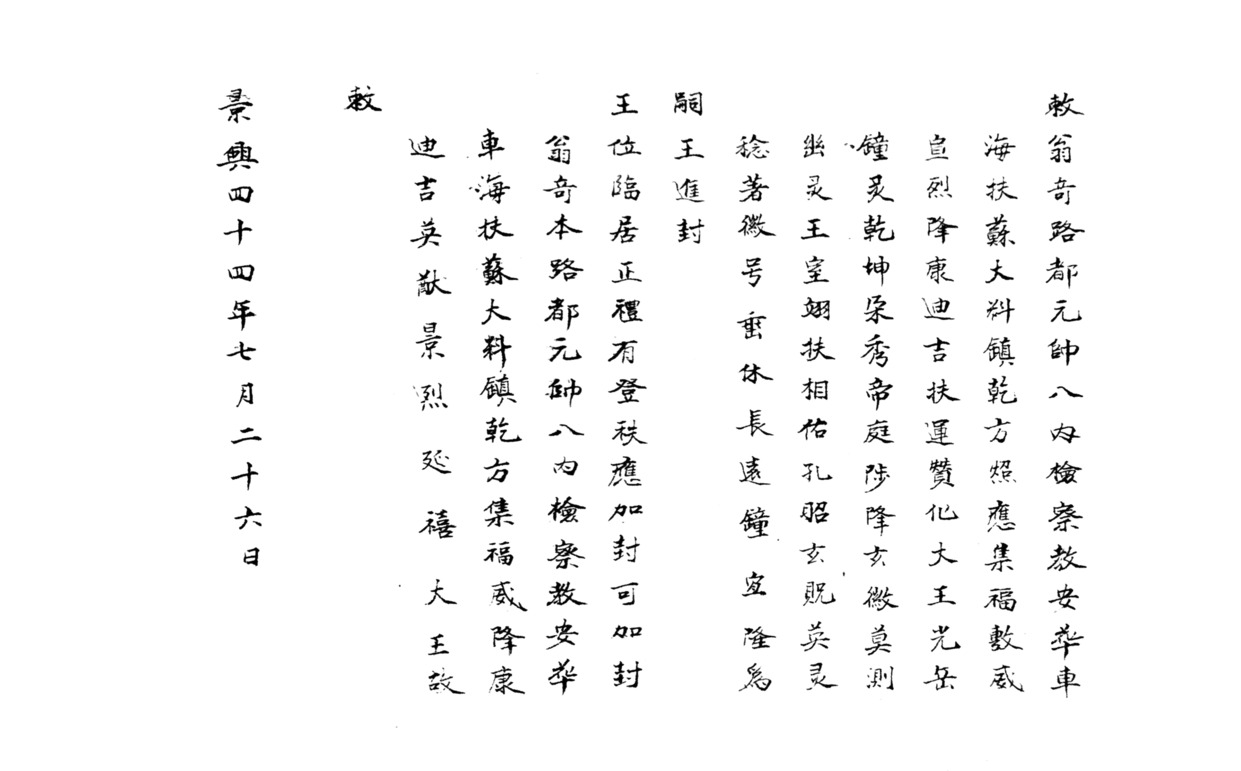 敕翁奇路都元帥八內檢察教安華車
海扶蘇大料鎮乾方照應集福敷威
宣烈降康迪吉扶運贊化大王光岳
鐘灵乾坤朶秀帝庭陟降玄微莫測
幽灵王室翊扶相佑孔昭玄貺英灵
稔著徽号垂休長遠鐘宜隆爲
嗣王進封
王位臨居正禮有登秩應加封可加封
翁奇本路都元帥八内檢察教安華
車海扶蘇大料鎮乾方集福威降康
迪吉英猷景烈延禧大王故
敕
景興四十四年七月二十六日